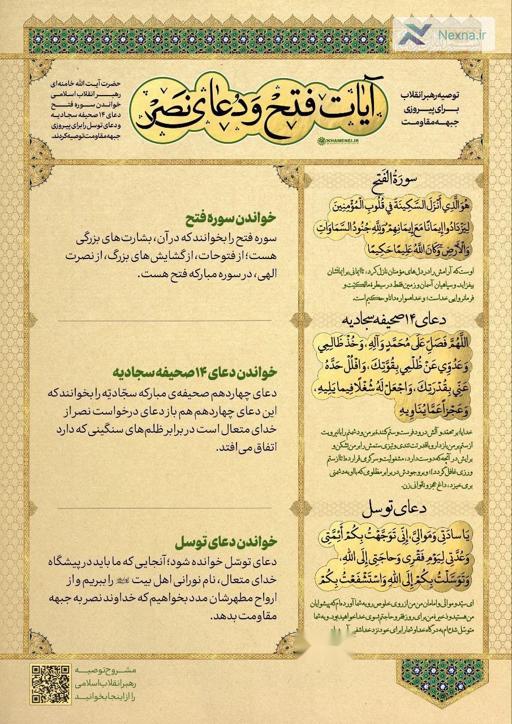 Nexna.ir
توصیه رهبر انقلاب
برای پیروزی
جبهه مقاومت
آیات فتح و دعای نصر
KHAMENEI.IR
حضرت آیت الله خامنه‌ای
رهبر انقلاب اسلامی
خواندن سوره فتح
دعای ۱۴ صحیفه سجادیه
و دعای توسل را برای پیروزی
جبهه مقاومت توصیه کردند.
سورة الفتح
هُوَ الَّذِي أَنْزَلَ السَّكِينَةَ فِي قُلُوبِ الْمُؤْمِنِينَ
لِيَزْدَادُوا إِيمَانًا مَعَ إِيمَانِهِمْ وَلِلَّهِ جُنُودُ السَّمَاوَاتِ
وَالْأَرْضِ وَكَانَ اللَّهُ عَلِيمًا حَكِيمًا
اوست که آرامش را در دل‌های مؤمنان نازل کرد، تا ایمانی بر ایمانشان
بیفزاید و سپاهیان آسمان و زمین فقط در سیطره مالکیّت و
فرمانروایی خداست؛ و خدا همواره دانا و حکیم است.
خواندن سوره فتح
سوره فتح را بخوانند که در آن، بشارت‌های بزرگی
هست؛ از فتوحات، از گشایش‌های بزرگ، از نصرت
الهی، در سوره مبارکه فتح هست.
دعای ۱۴ صحیفه سجادیه
اللَّهُمَّ فَصَلِّ عَلَى مُحَمَّدٍ وَآلِهِ، وَخُذْ ظَالِمِي
وَعَدُوِّي عَنْ ظُلْمِي بِقُوَّتِكَ، وَافْلُلْ حَدَّهُ
عَنِّي بِقُدْرَتِكَ، وَاجْعَلْ لَهُ شُغْلًا فِيمَا يَلِيهِ،
وَعَجْزًا عَمَّا يُنَاوِيهِ
خدایا بر محمّد و آلش درود فرست و ستم‌کننده بر من و دشمنم را با نیرویت
از ستم بر من باز دار
خواندن دعای ۱۴ صحیفه سجادیه
دعای چهاردهم صحیفه‌ی مبارکه سجّادیّه را بخوانند که
این دعای چهاردهم هم باز دعای درخواست نصر از
خدای متعال است در برابر ظلم‌های سنگینی که دارد
اتفاق می‌افتد.
دعای توسل
يَا سَادَتِي وَمَوَالِيَّ، إِنِّي تَوَجَّهْتُ بِكُمْ أَئِمَّتِي
وَعُدَّتِي لِيَوْمِ فَقْرِي وَحَاجَتِي إِلَى اللَّهِ،
وَتَوَسَّلْتُ بِكُمْ إِلَى اللَّهِ وَاسْتَشْفَعْتُ بِكُمْ
خواندن دعای توسل
دعای توسّل خوانده شود؛ آنجایی که ما باید در پیشگاه
خدای متعال، نام نورانی اهل بیت را ببریم و از
ارواح مطهرشان مدد بخواهیم که خداوند نصر به جبهه
مقاومت بدهد.
مشروح توصیه
رهبر انقلاب اسلامی
را از اینجا بخوانید